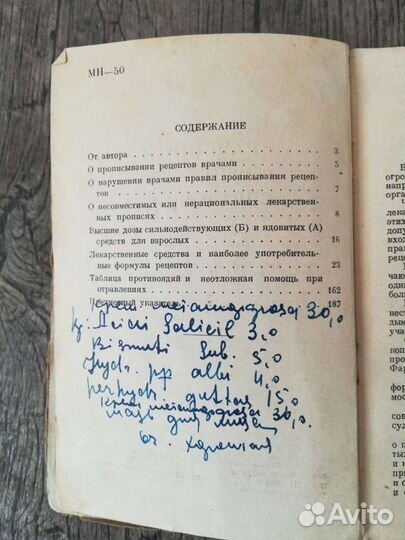 МН—50
СОДЕРЖАНИЕ
От автора 3
О прописывании рецептов врачами 5
О нарушении врачами правил прописывания рецеп-
тов 7
О несовместимых или нерациональных лекарствен-
ных прописях 8
Высшие дозы сильнодействующих (Б) и ядовитых (А)
средств для взрослых 16
Лекарственные средства и наиболее употребитель-
ные формулы рецептов 23
Таблица противоядий и неотложная помощь при
отравлениях 162
Предметный указатель 187
30,0
Acidi Salicil 3,0
Bismuti Sub. 5,0
Hydr. pp albi 4,0
perhydr guttas 15,0
30,0.
мазь для лица
оч. хорошая
Avito